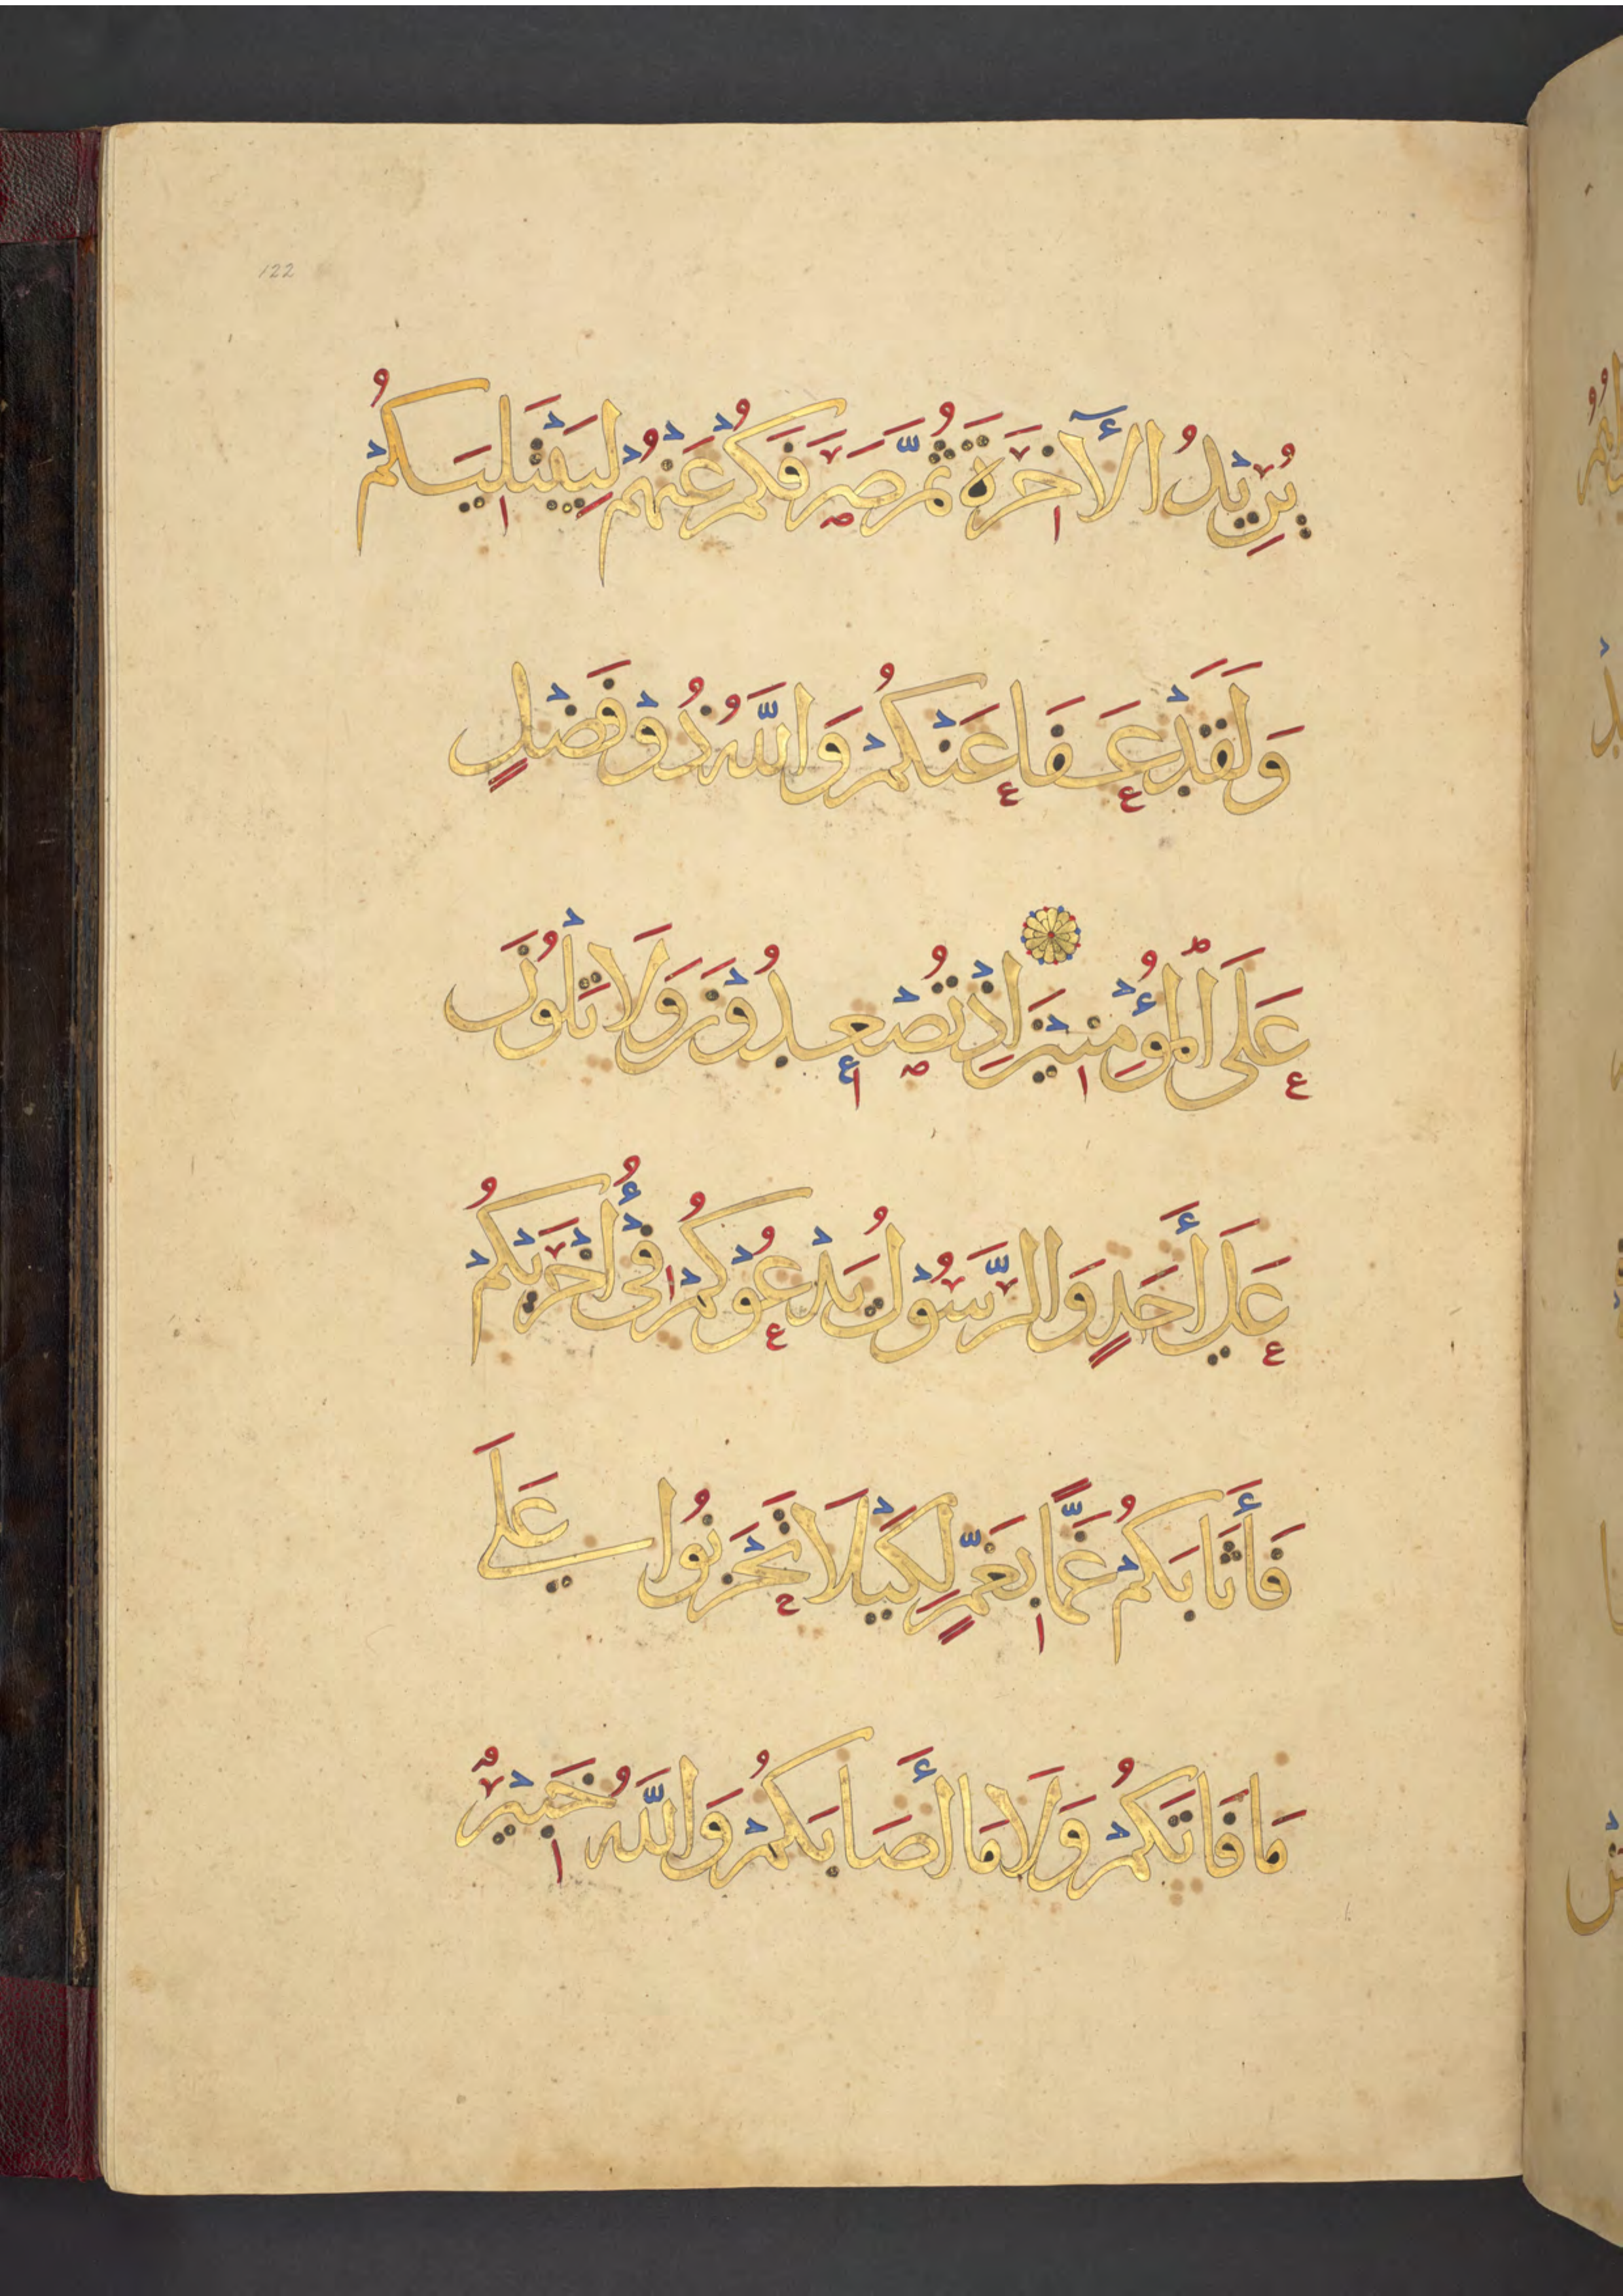 122
يُرِيْدُ الْآخِرَةَ ثُمَّ صَرَفَكُمْ عَنْهُمْ لِيَبْتَلِيَكُمْ
وَلَقَدْ عَفَا عَنْكُمْ وَاللَّهُ ذُوْ فَضْلٍ
عَلَى الْمُؤْمِنِيْنَ اِذْ تُصْعِدُوْنَ وَلَا تَلْوُنَ
عَلَي أَحَدٍ وَالرَّسُوْلُ يَدْعُوْكُمْ فِيْ أُخْرَيْكُمْ
فَأَثَابَكُمْ غَمًّا بِغَمٍّ لِكَيْلَا تَحْزَنُوا عَلَي
مَا فَاتَكُمْ وَلَا مَا أَصَابَكُمْ وَاللَّهُ خَبِيْرٌ